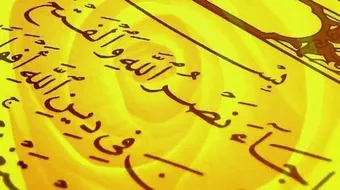 بِسْـ
جَآءَ نَصْرُ اللَّهِ وَالْفَتْحُ
نَ فِي دِينِ اللَّهِ أَفْوَ